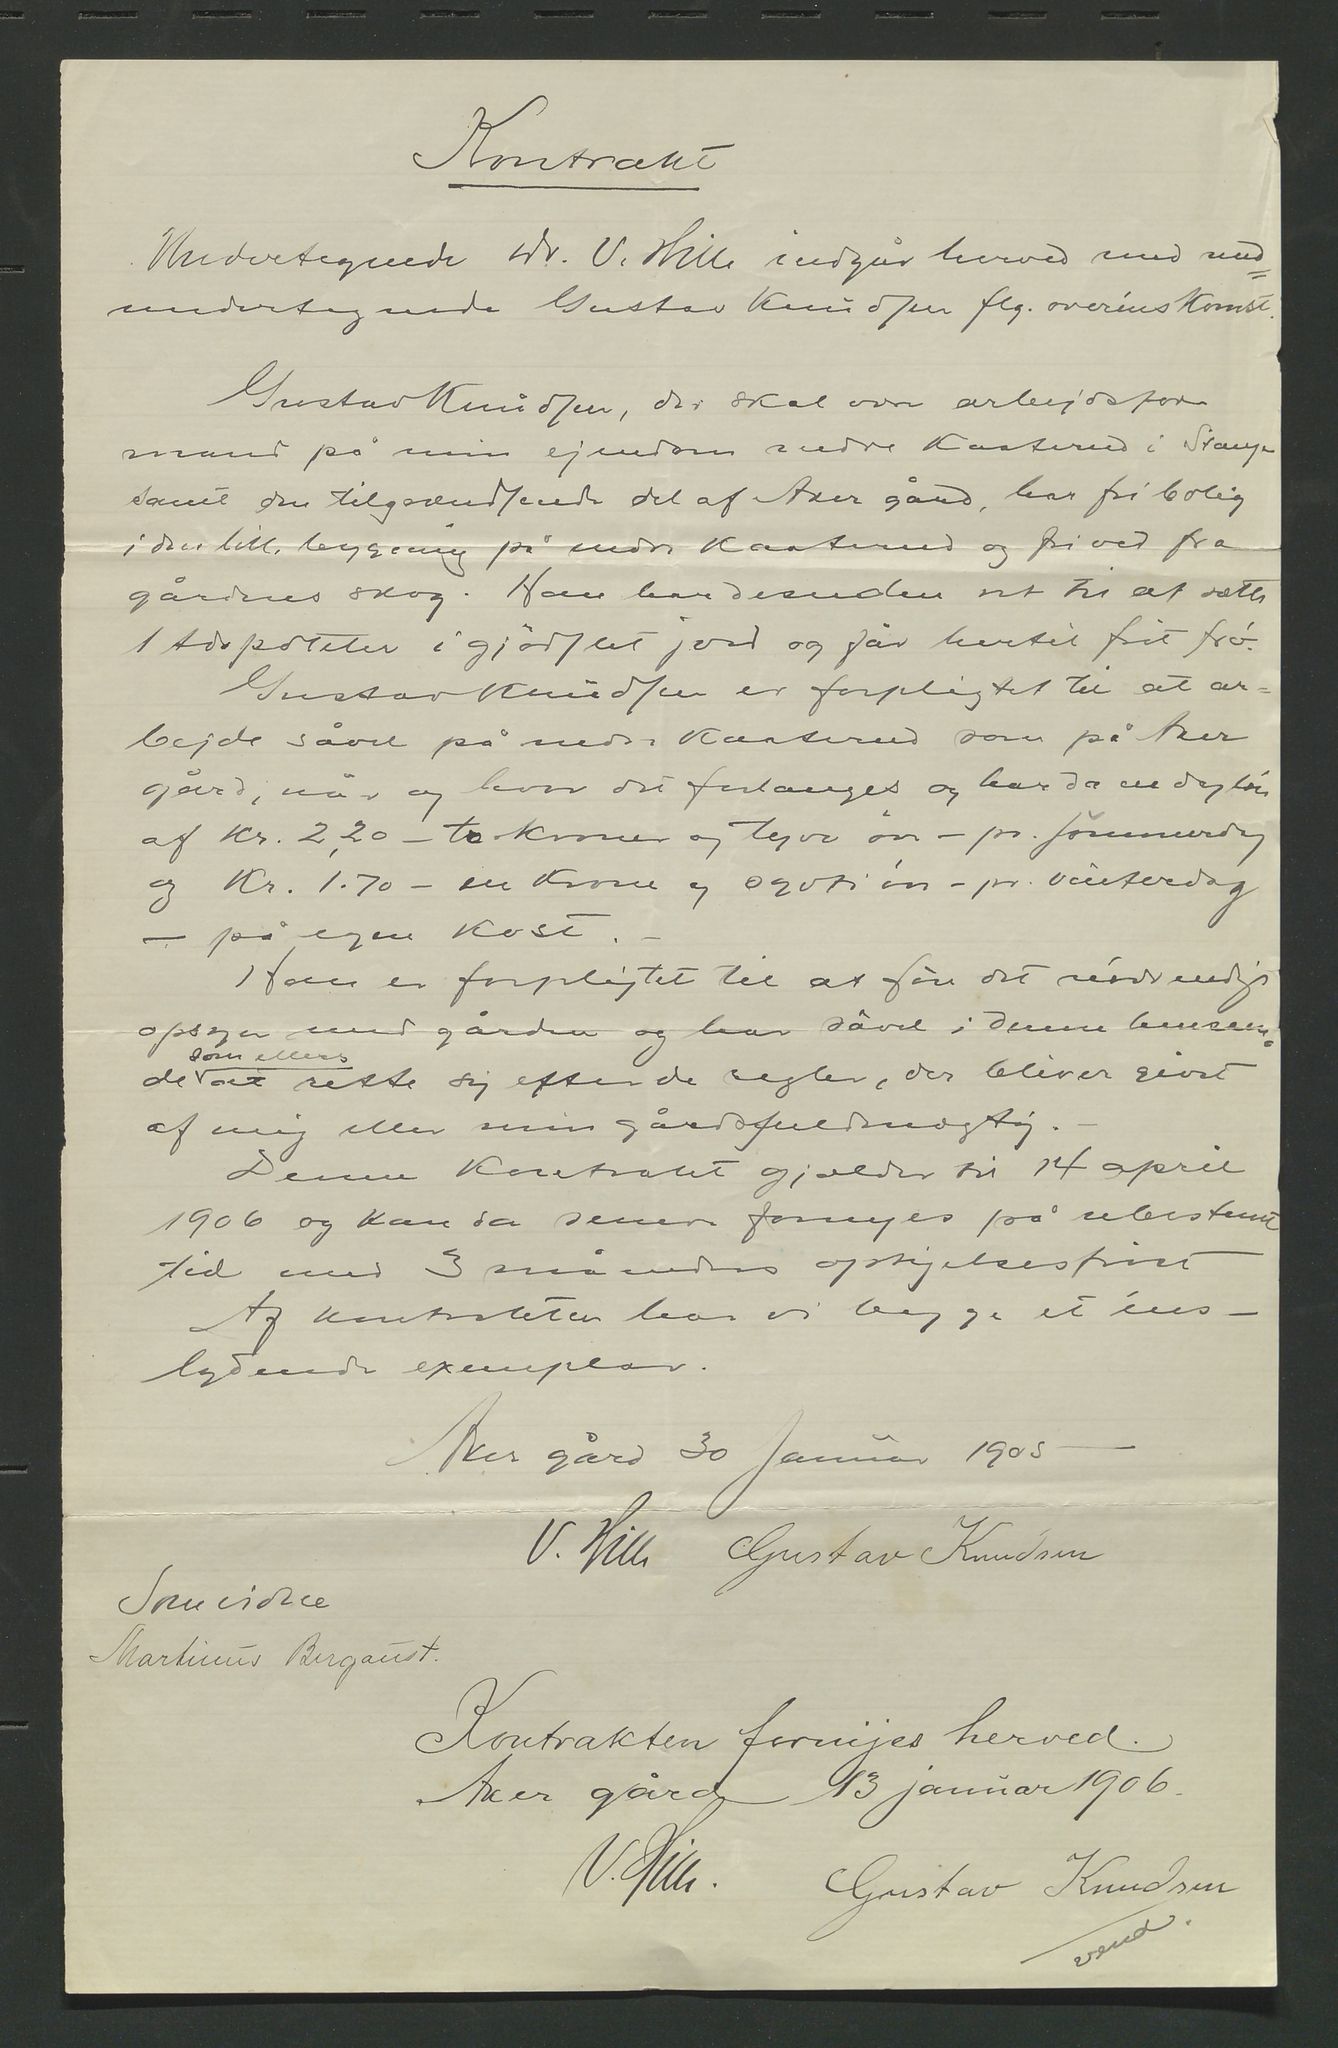 Kontrakt
Undertegnede Dr. V. Hille indgår herved med med=
undertegnede Gustav Knudsen flg. overenskomst.
Gustav Knudsen, der skal være arbejdsfor-
mand på min ejendom nedre Kaaterud i Stange
samt den tilgrændsende del af Aker gård, har fri bolig
i den lille bygning på nedre Kaaterud og fri ved fra
gårdens skog. Han har desuden ret til at sætte
1 tde poteter i gjødslet jord og får hertil frit frø.
Gustav Knudsen er forpligtet til at ar=
bejde såvel på nedre Kaaterud som på Aker
gård, når og hvor det forlanges og har da en dagløn
af Kr. 2,20 – to kroner og tyve øre – pr. sommerdag
og Kr. 1.70 – en krone og sytti øre – pr. vinterdag
– på egen kost. –
Han er forpligtet til at føre det nødvendige
opsyn med gården og har såvel i denne henseen=
de som ellers at rette sig efter de regler, der bliver givet
af mig eller min gårdsfuldmægtig. –
Denne kontrakt gjælder til 14 april
1906 og kan da senere fornyes på ubestemt
tid med 3 måneders opsigelsesfrist
Af kontrakten har vi begge et ens-
lydende exemplar.
Aker gård 30 Januar 1905
V. Hille Gustav Knudsen
Som vidne
Martinus Bergaust.
Kontrakten fornyes herved.
Aker gård 13 januar 1906.
V. Hille. Gustav Knudsen
vend.